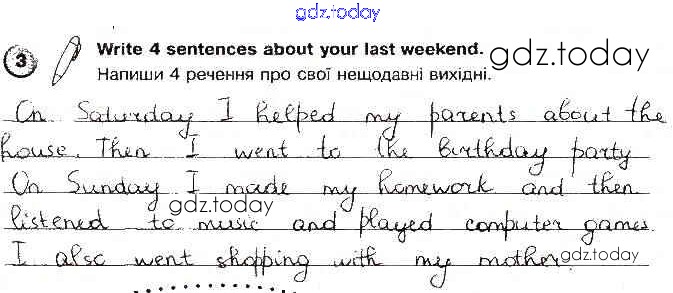 gdz.today
3 Write 4 sentences about your last weekend. gdz.today
Напиши 4 речення про свої нещодавні вихідні.
On Saturday I helped my parents about the
house. Then I went to the Birthday party
On Sunday I made my homework and then
gdz.today
listened to music and played computer games.
gdz.today
I also went shopping with my mother.